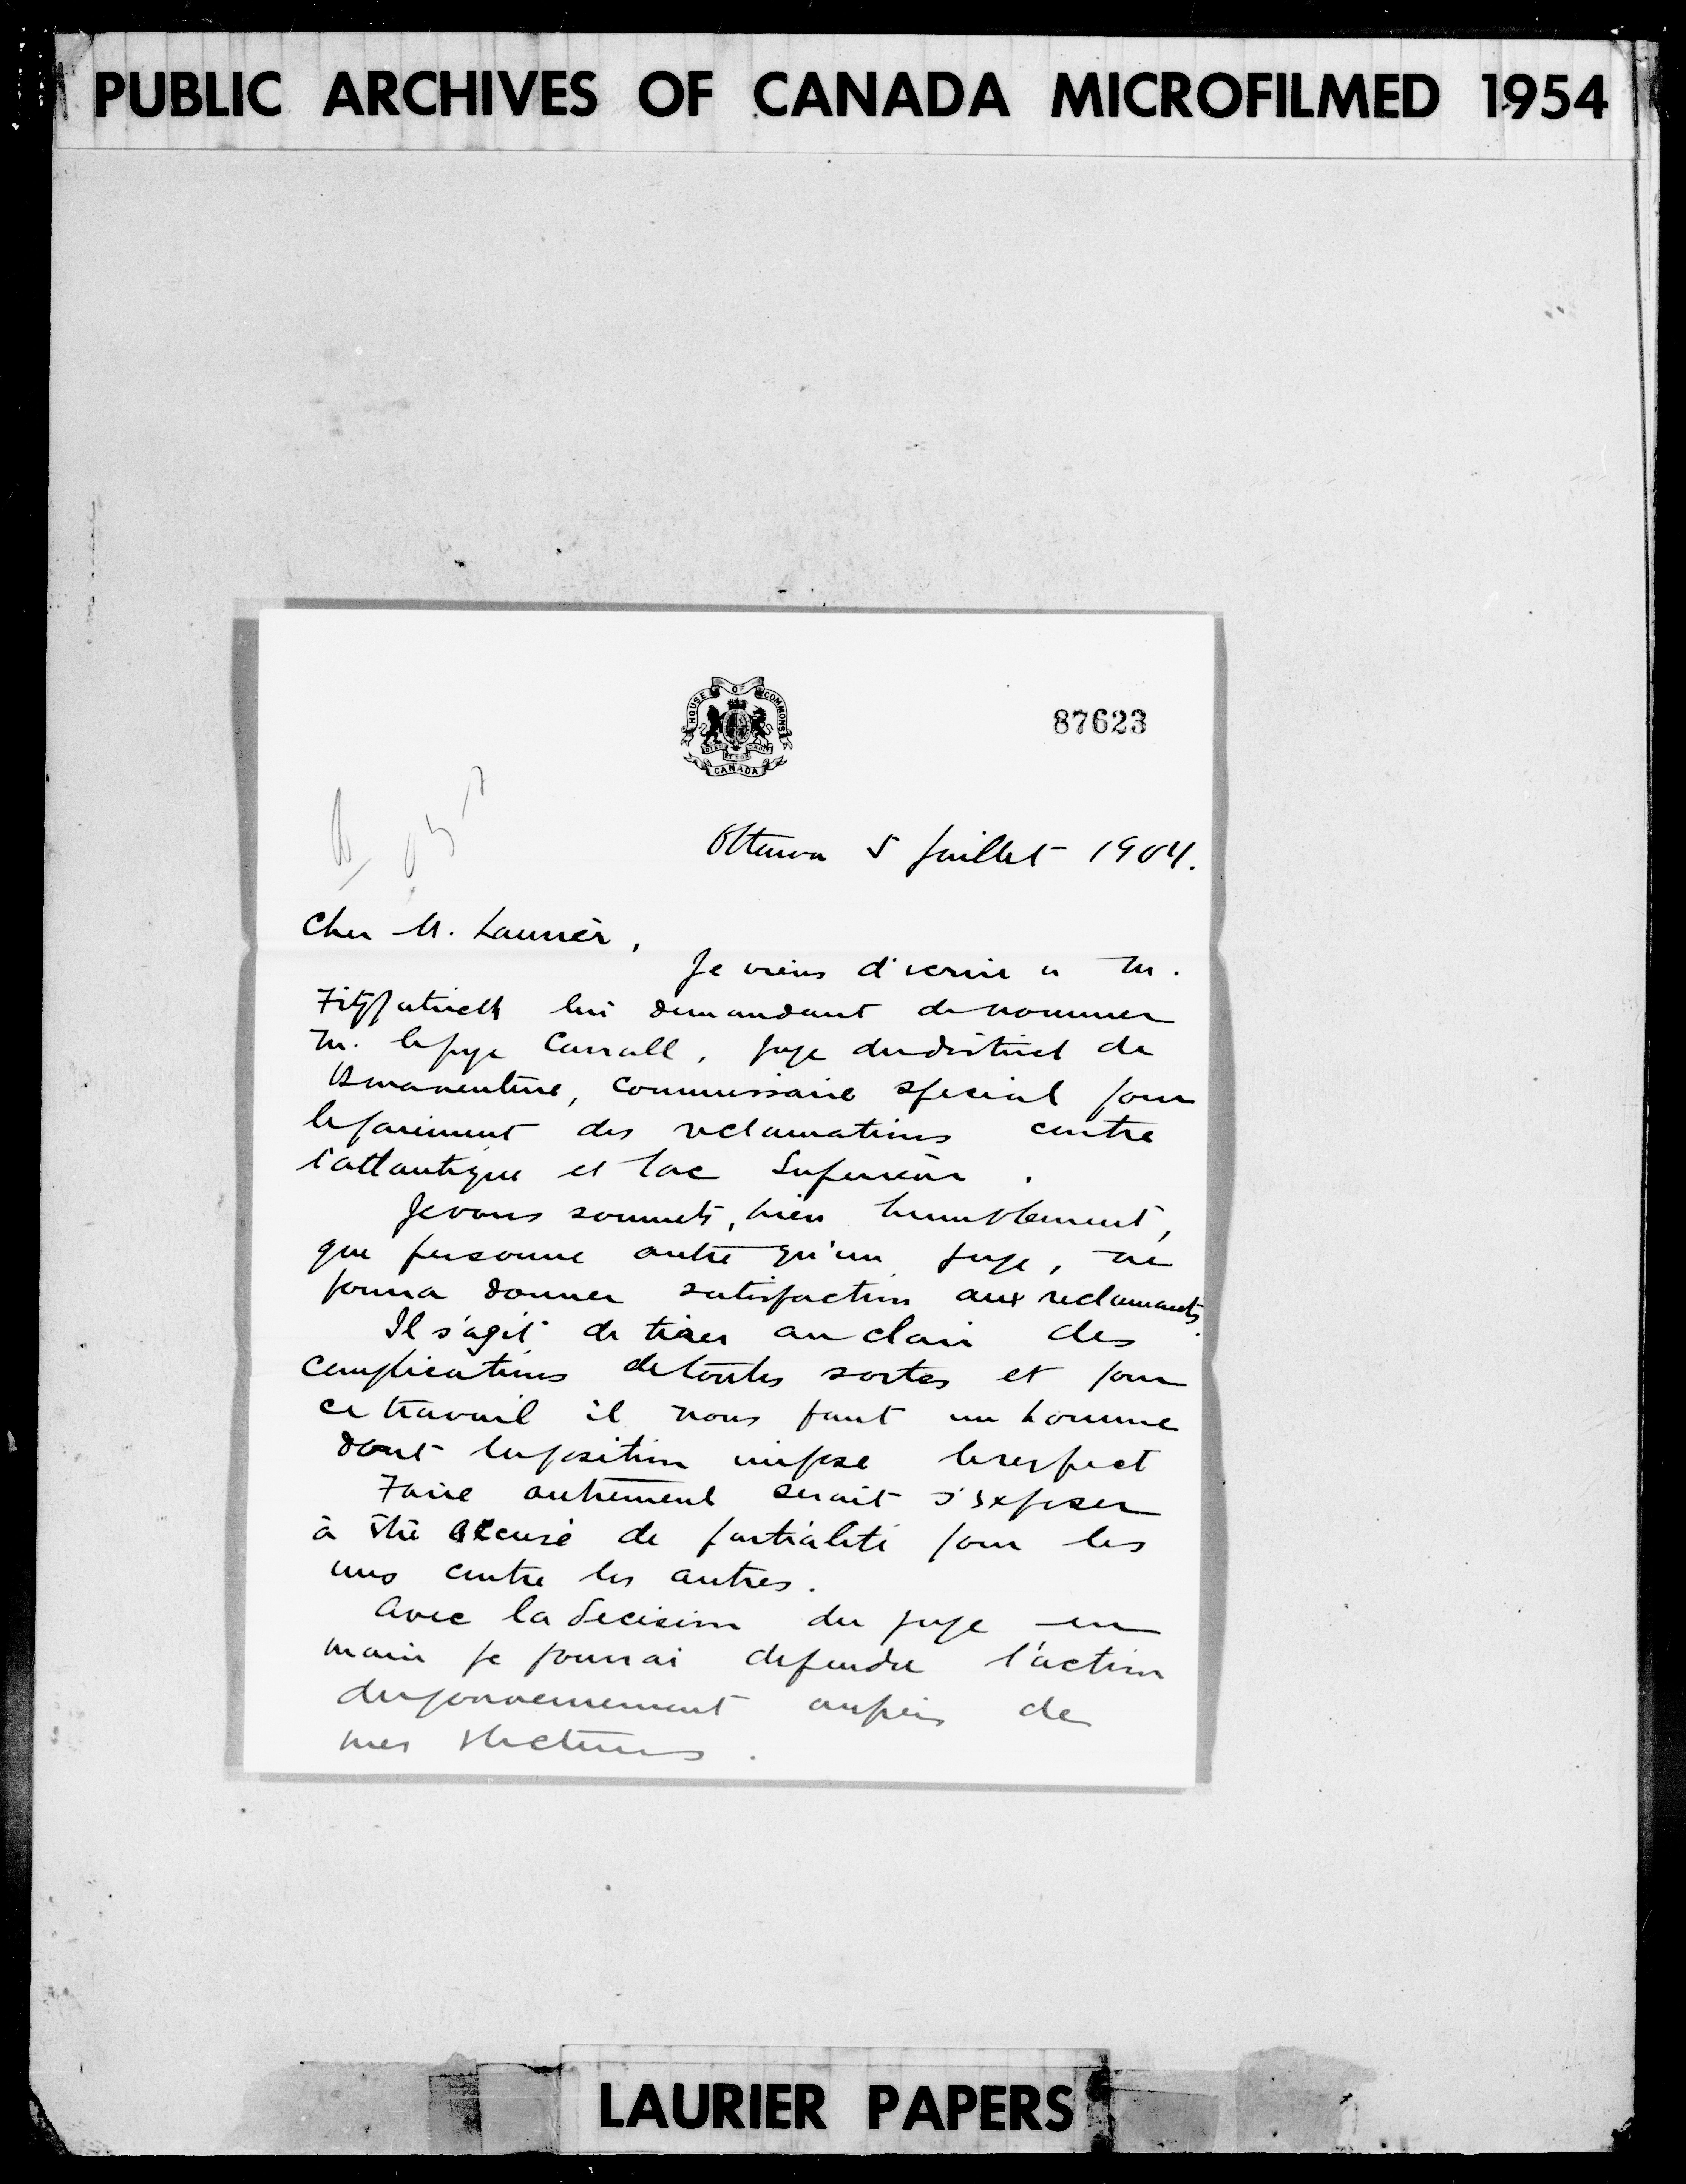 PUBLIC ARCHIVES OF CANADA MICROFILMED 1954
HOUSE OF COMMONS
CANADA
87623
Ottawa 5 juillet 1904.
Cher M. Laurier,
Je viens d'ecrire a M.
Fitzpatrick lui demandant de nommer
M. le juge Carroll, juge du district de
Bonaventure, commissaire special pour
le paiement des reclamations contre
l'atlantique et lac Superieur.
Je vous soumets, bien humblement,
que personne autre qu'un juge, ne
pourra donner satisfaction aux reclamants.
Il s'agit de tirer au clair des
complications de toutes sortes et pour
ce travail il nous faut un homme
dont la position impose le respect
Faire autrement serait s'exposer
à être accusé de partialité pour les
uns contre les autres.
Avec la decision du juge en
main je pourrai defendre l'action
du gouvernement aupres de
mes electeurs.
LAURIER PAPERS